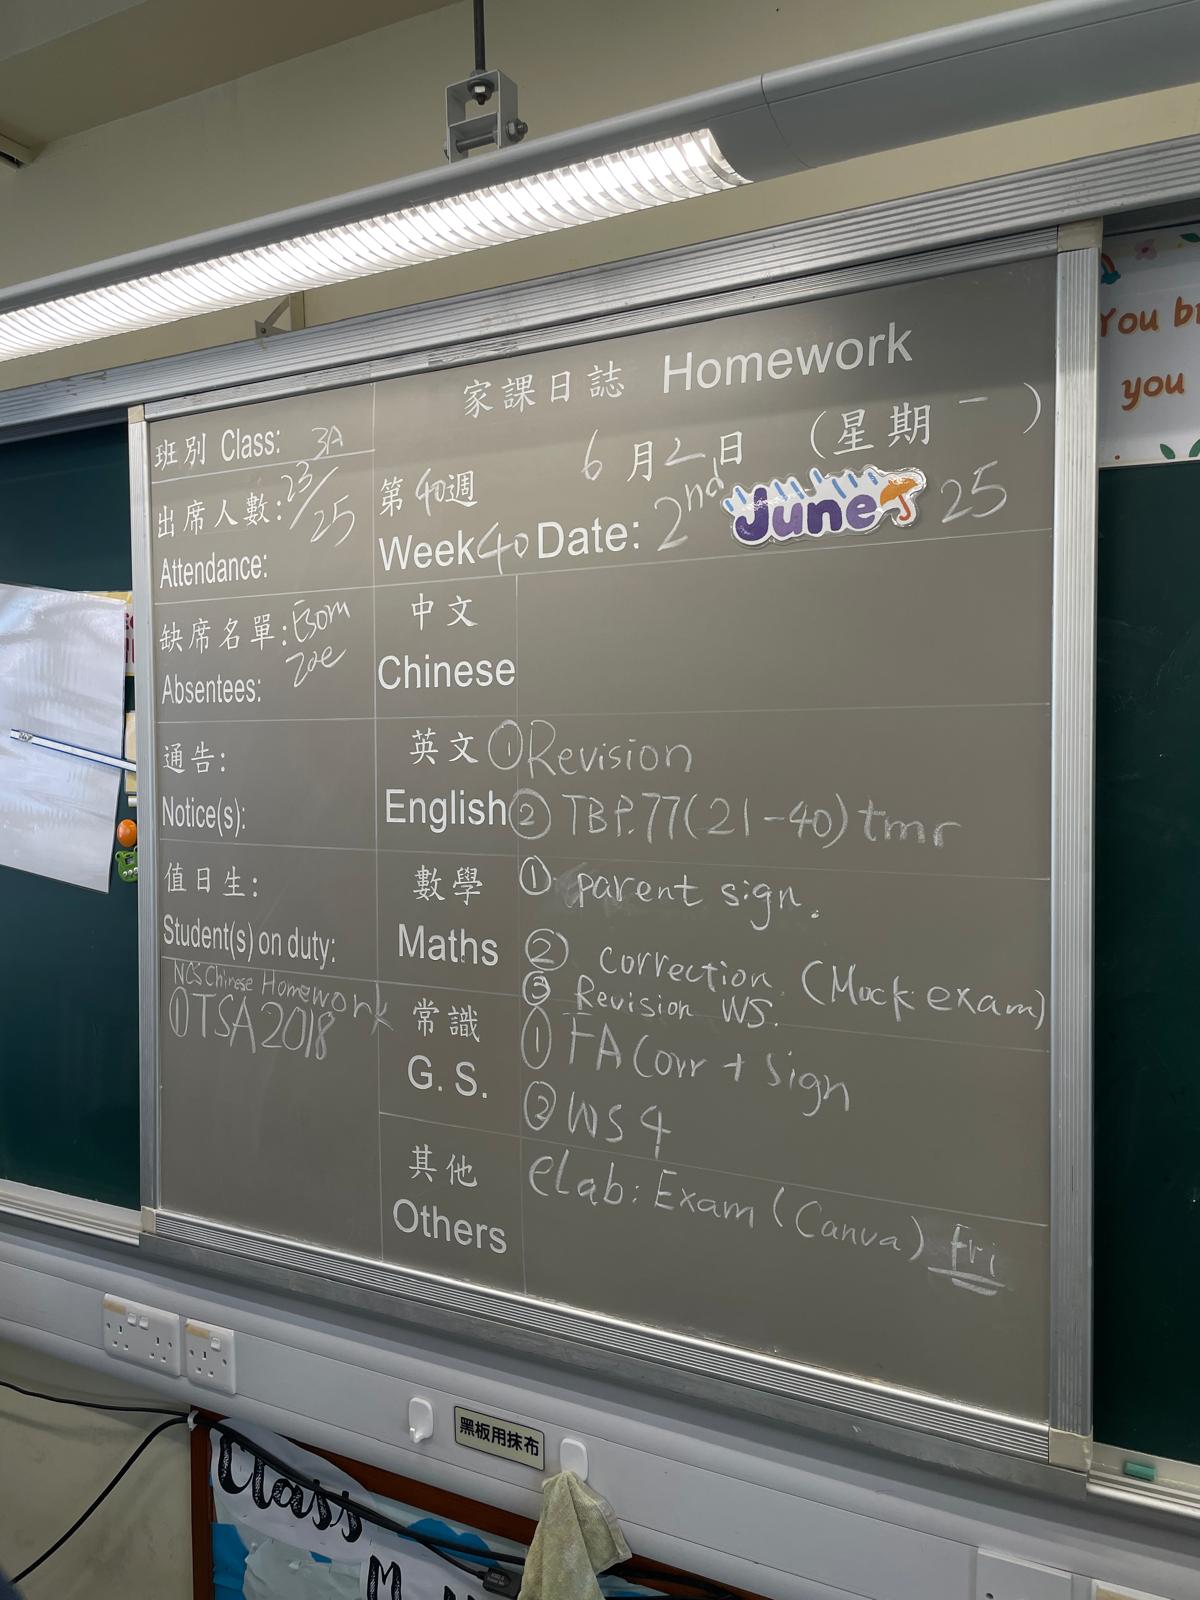 家課日誌 Homework
班別 Class: 3A
出席人數: 23/25
Attendance:
第40週 6月2日 (星期一)
Week 40 Date: 2nd June 25
缺席名單: Esom
Zoe
Absentees:
通告:
Notice(s):
值日生:
Student(s) on duty:
NCS Chinese Homework
①TSA2018
中文
Chinese
英文 ①Revision
English ② TBP.77(21-40) tmr
數學 ① parent sign.
Maths ② correction. (Mock exam)
③ Revision WS.
常識 ① FA Corr + sign
G. S. ② WS 4
其他 eLab: Exam (Canva) fri
Others
You br
you
黑板用抹布
Class
M